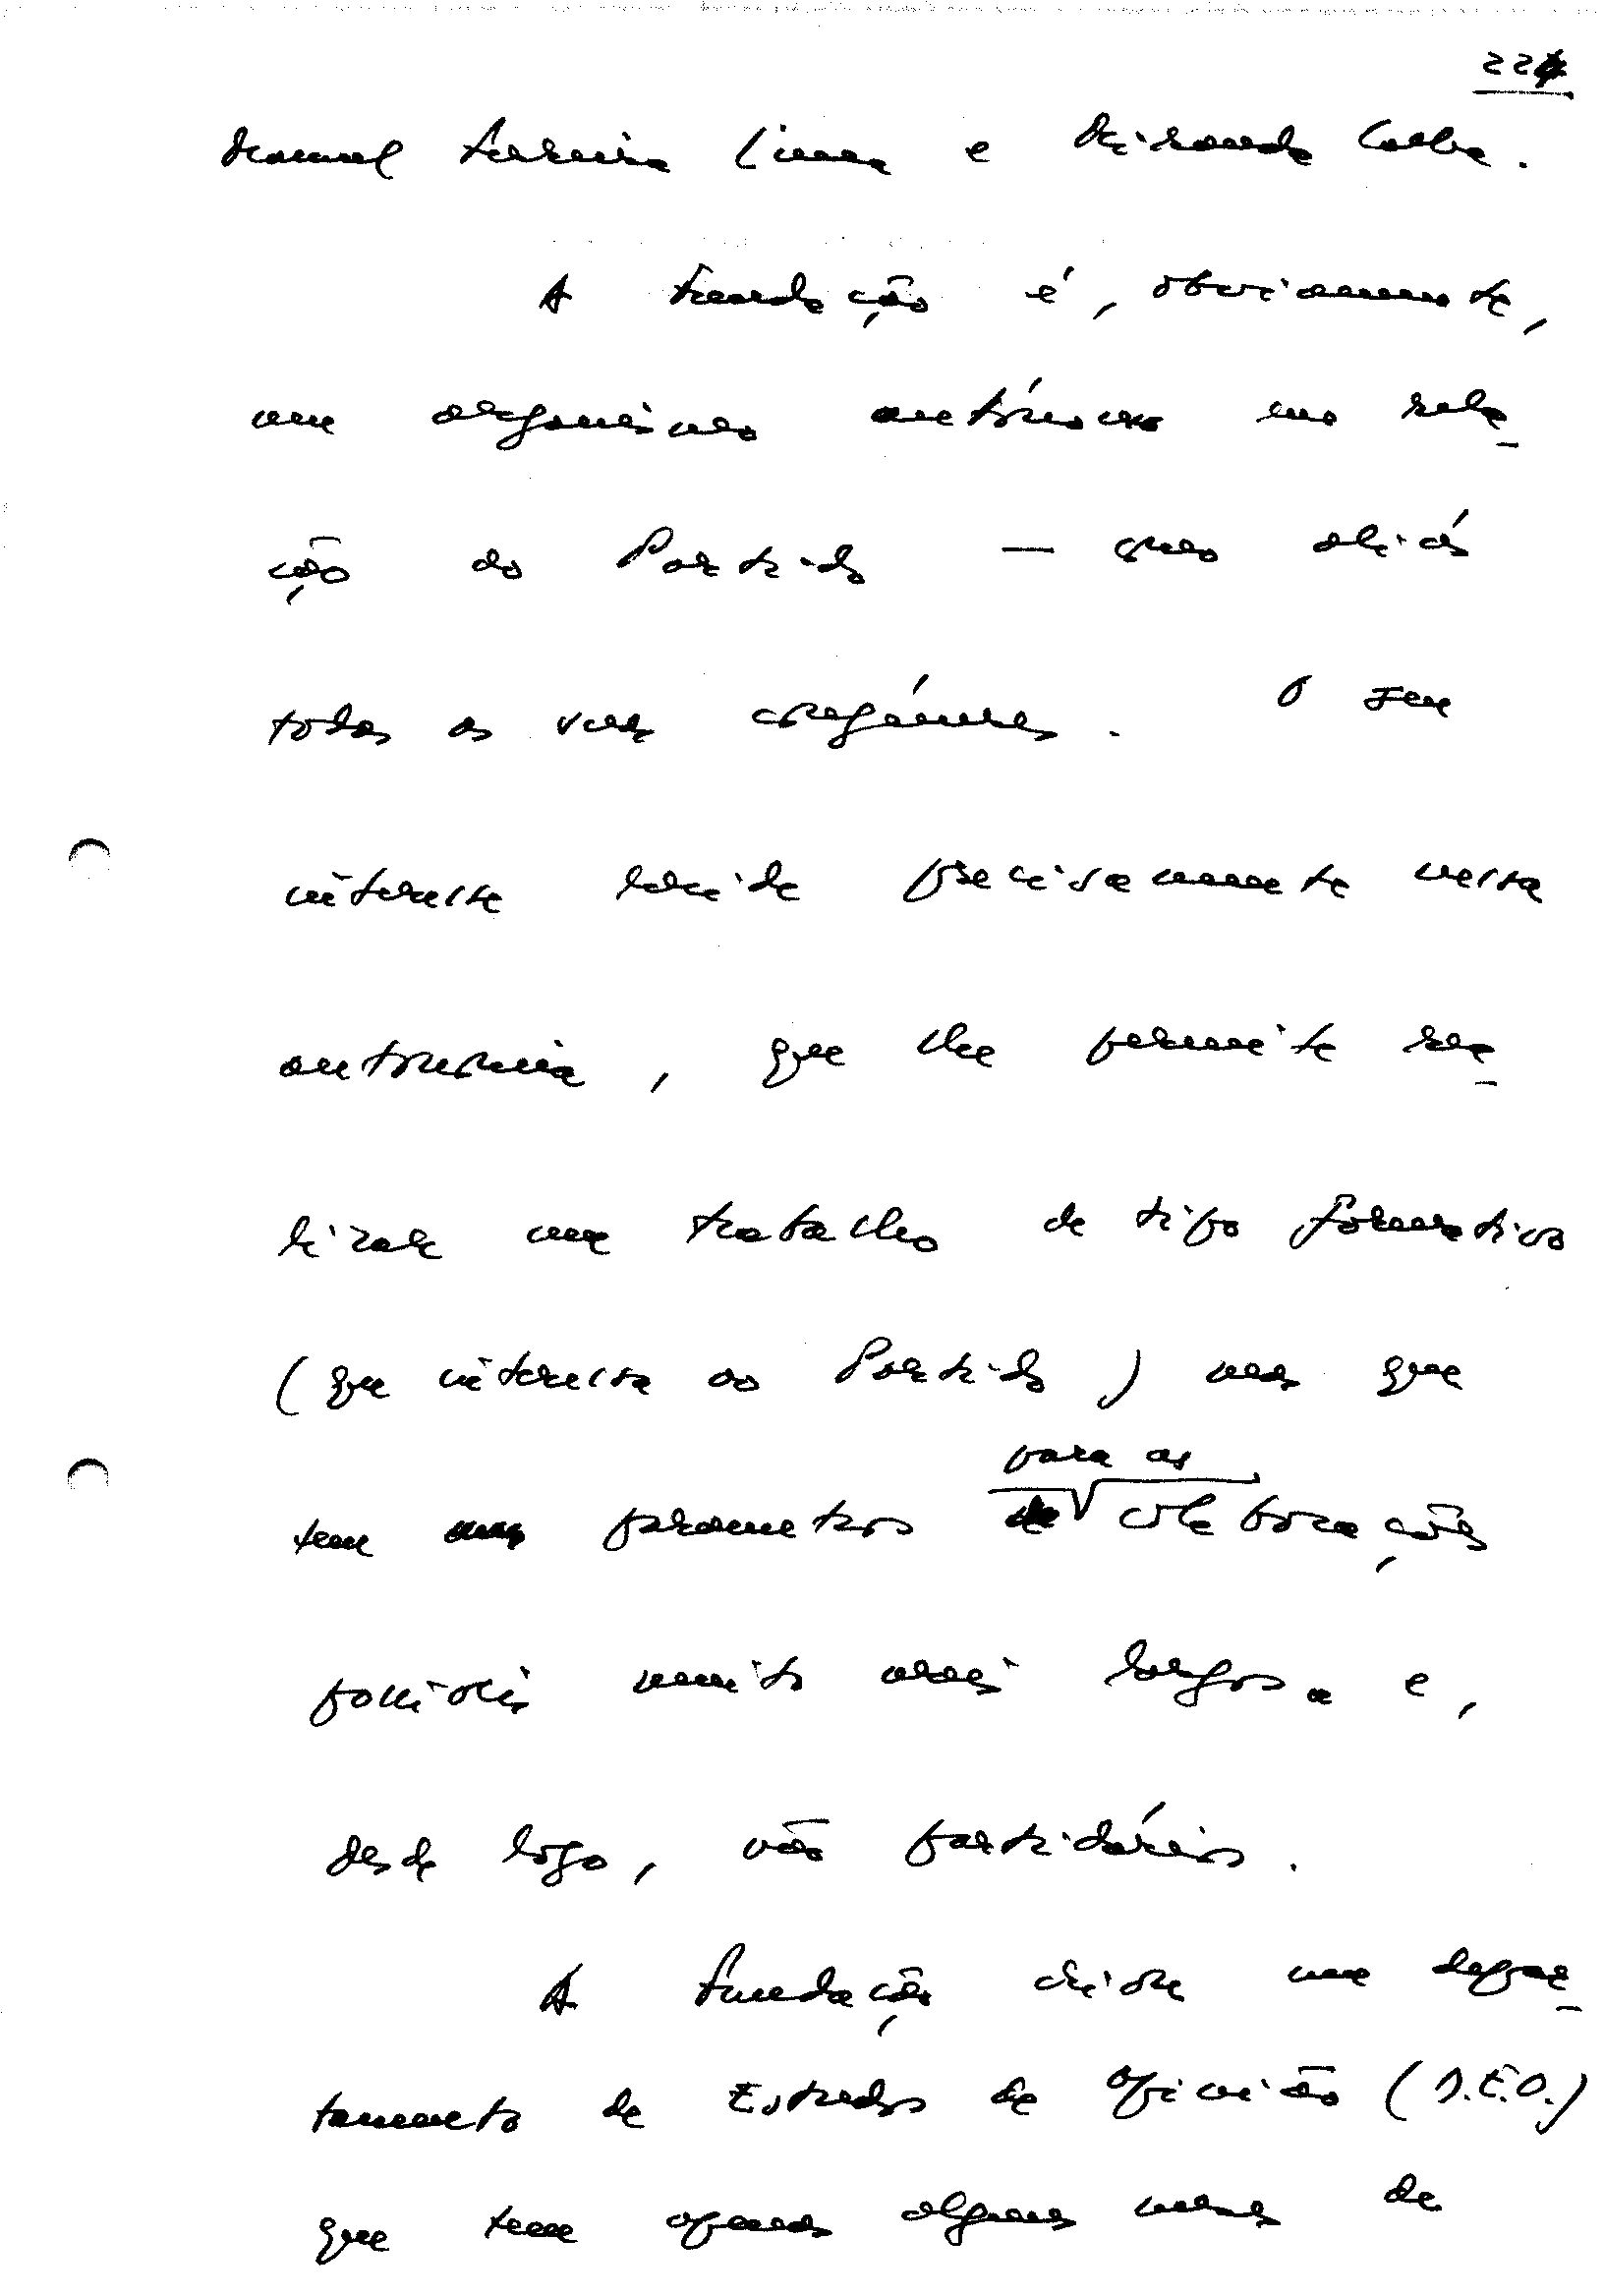 Manuel Ferreira Lima e
A Fundação é, obviamente,
um organismo autónomo em rela-
ção ao Partido — que aliás
todos os seus órgãos. O seu
interesse reside precisamente nesta
autonomia, que lhe permite rea-
lizar um trabalho de tipo formativo
(que interessa ao Partido) mas que
para as
tem colaborações
possíveis muito mais largos e,
desde logo, não partidários.
A Fundação dispõe um depar-
tamento de Estudos de Opinião (D.E.O.)
que tem apenas alguns meses de